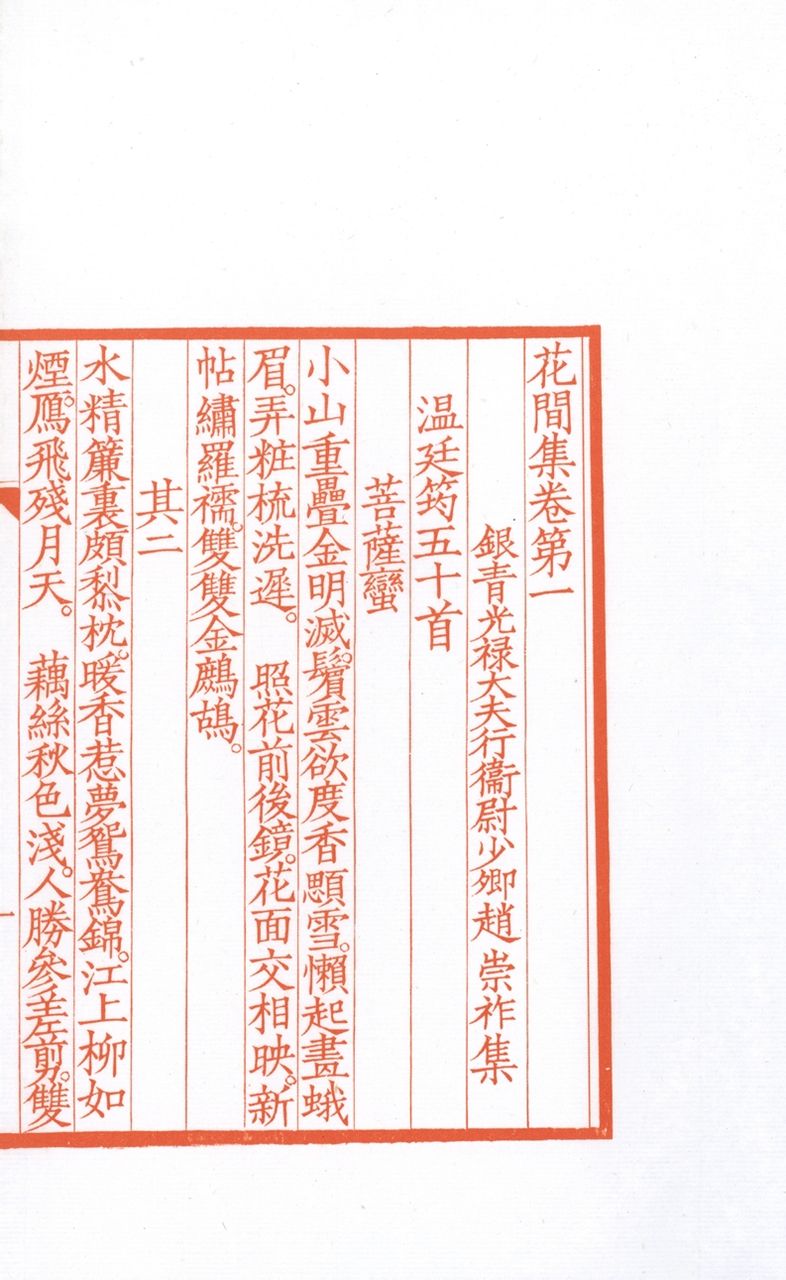 花間集卷第一
銀青光禄大夫行衞尉少卿趙崇祚集
温廷筠五十首
菩薩蠻
小山重疊金明滅。鬢雲欲度香顋雪。懶起畫蛾
眉。弄粧梳洗遲。　照花前後鏡。花面交相映。新
帖繡羅襦。雙雙金鷓鴣。
其二
水精簾裏頗黎枕。暖香惹夢鴛鴦錦。江上柳如
煙。鴈飛殘月天。　藕絲秋色淺。人勝參差剪。雙
一